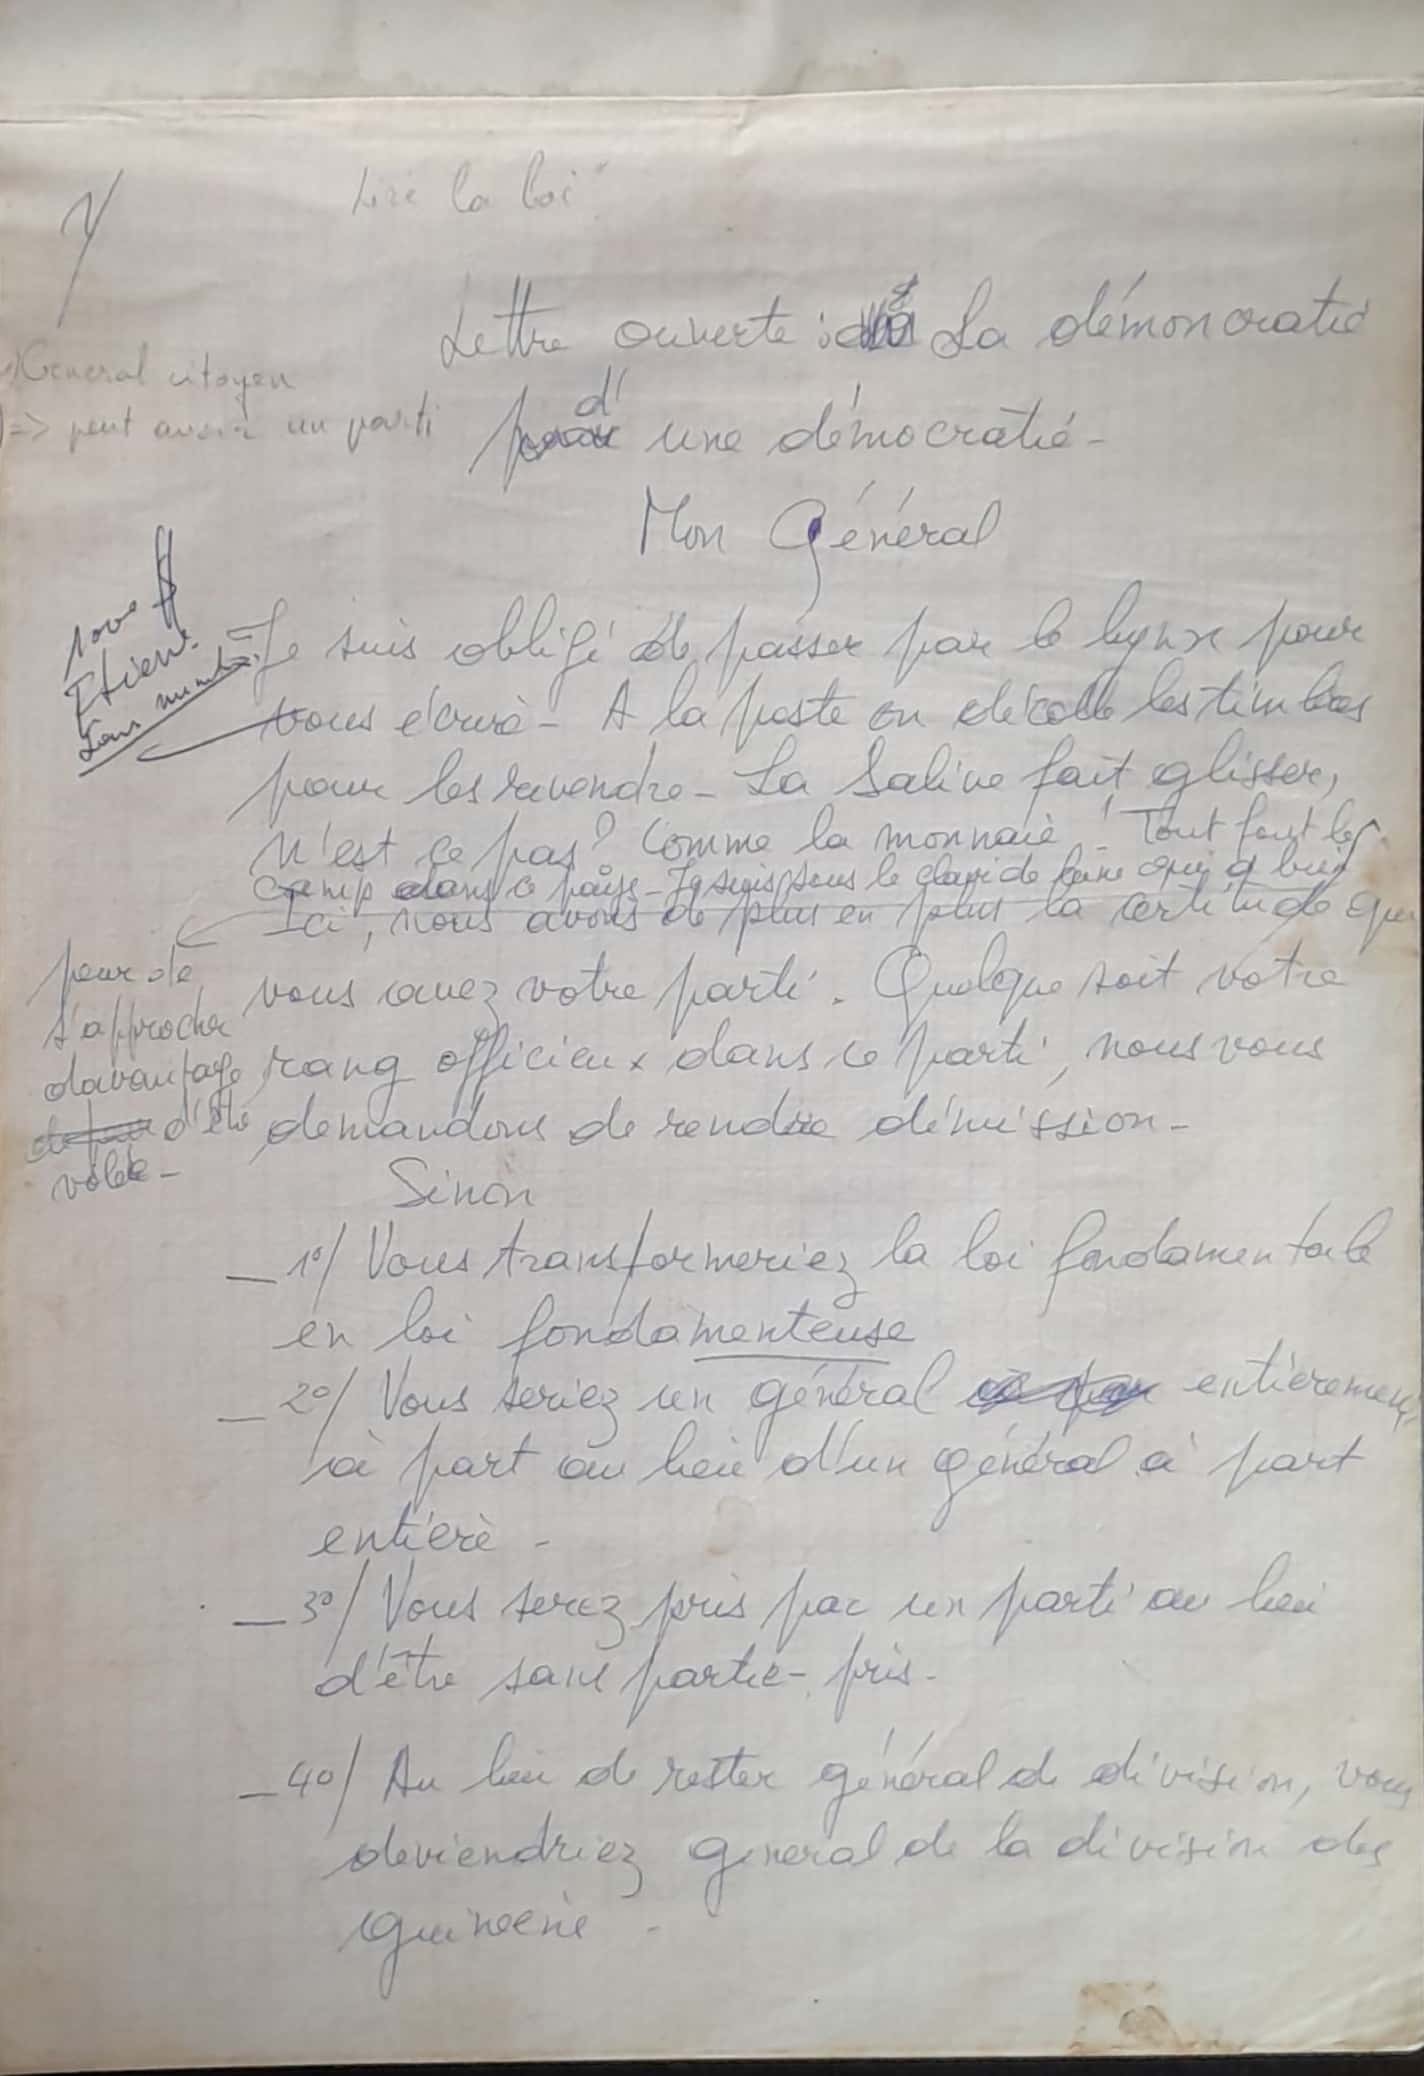 Lire la loi
Lettre ouverte : La démoncratie
General citoyen
=> peut avoir un parti
d'une démocratie -
Mon Général
Je suis obligé de passer par le lynx pour
vous écrire - A la poste on décolle les timbres
pour les revendre - La Salive fait glisser,
n'est ce pas ? Comme la monnaie ! Tout fout le
camp dans ce pays - Je suis sous le
Ici, nous avons de plus en plus la certitude que
vous avez votre parti. Quelque soit votre
rang officieux dans ce parti, nous vous
demandons de rendre démission -
peur de
s'approcher
davantage
d'être
volée -
Sinon
_ 1°/ Vous transformeriez la loi fondamentale
en loi fondamenteuse
_ 2°/ Vous seriez un général entièrement
à part au lieu d'un général à part
entière -
_ 3°/ Vous serez pris par un parti au lieu
d'être sans partie-pris -
_ 4°/ Au lieu de rester général de division, vous
deviendriez general de la division des